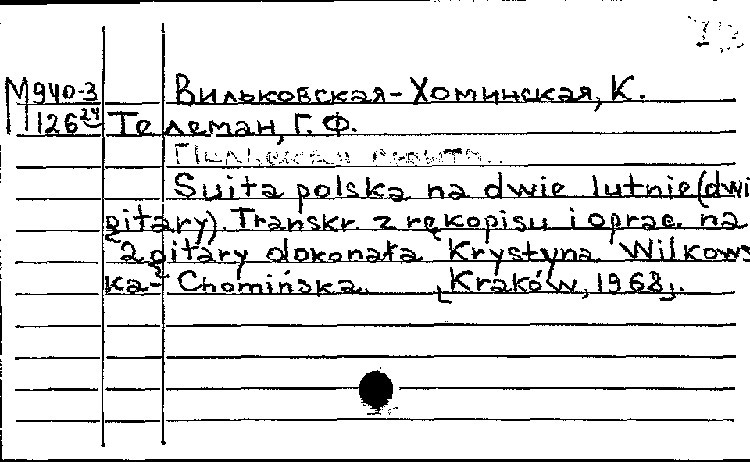 М940-3 Вильковская-Хоминская, К.
126²⁴ Телеман, Г. Ф.
Suita polska na dwie lutnie (dwi
gitary). Transkr. z rękopisu i oprac. na
2 gitary dokonała Krystyna Wilkows
ka-Chomińska. [Kraków, 1968].